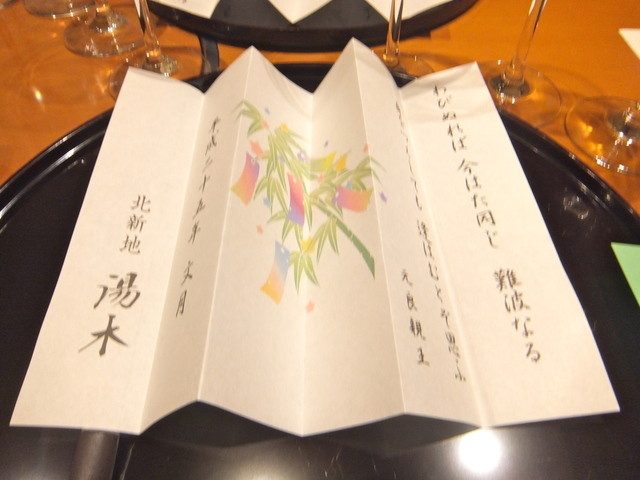 わびぬれば 今はた同じ 難波なる
みをつくしても 逢はむとぞ思ふ
元良親王
平成二十五年 文月
北新地 湯木